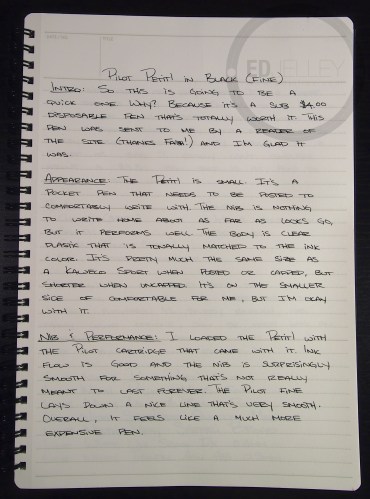 ED JELLEY
Pilot Petit1 in Black (Fine)
Intro: So this is going to be a
quick one. Why? Because it's a sub $4.00
disposable pen that's totally worth it. This
pen was sent to me by a reader of
the site (thanks !) and I'm glad it
was.
Appearance: The Petit1 is small. It's a
pocket pen that needs to be posted to
comfortably write with. The nib is nothing
to write home about as far as looks go,
but it performs well. The body is clear
plastic that is tonally matched to the ink
color. It's pretty much the same size as
a Kaweco Sport when posted or capped, but
shorter when uncapped. It's on the smaller
side of comfortable for me, but I'm okay
with it.
Nib & Performance: I loaded the Petit1 with
the Pilot cartridge that came with it. Ink
flow is good and the nib is surprisingly
smooth for something that's not really
meant to last forever. The Pilot fine
lays down a nice line that's very smooth.
Overall, it feels like a much more
expensive pen.